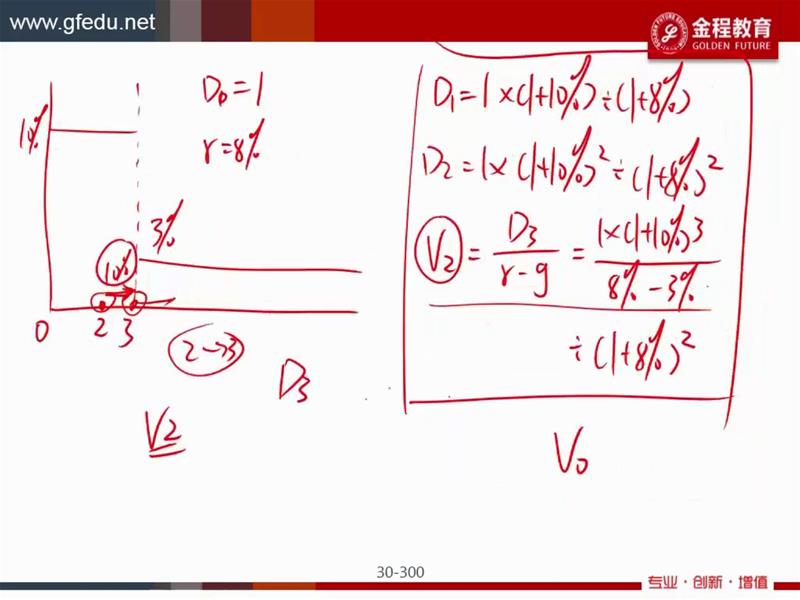 www.gfedu.net
金程教育
GOLDEN FUTURE
D₀=1
r=8%
10%
3%
10%
0 2 3
2→3
D₃
V₂
D₁=1×(1+10%)÷(1+8%)
D₂=1×(1+10%)²÷(1+8%)²
V₂ = D₃/(r-g) = 1×(1+10%)3/(8%-3%)
÷(1+8%)²
V₀
30-300
专业·创新·增值